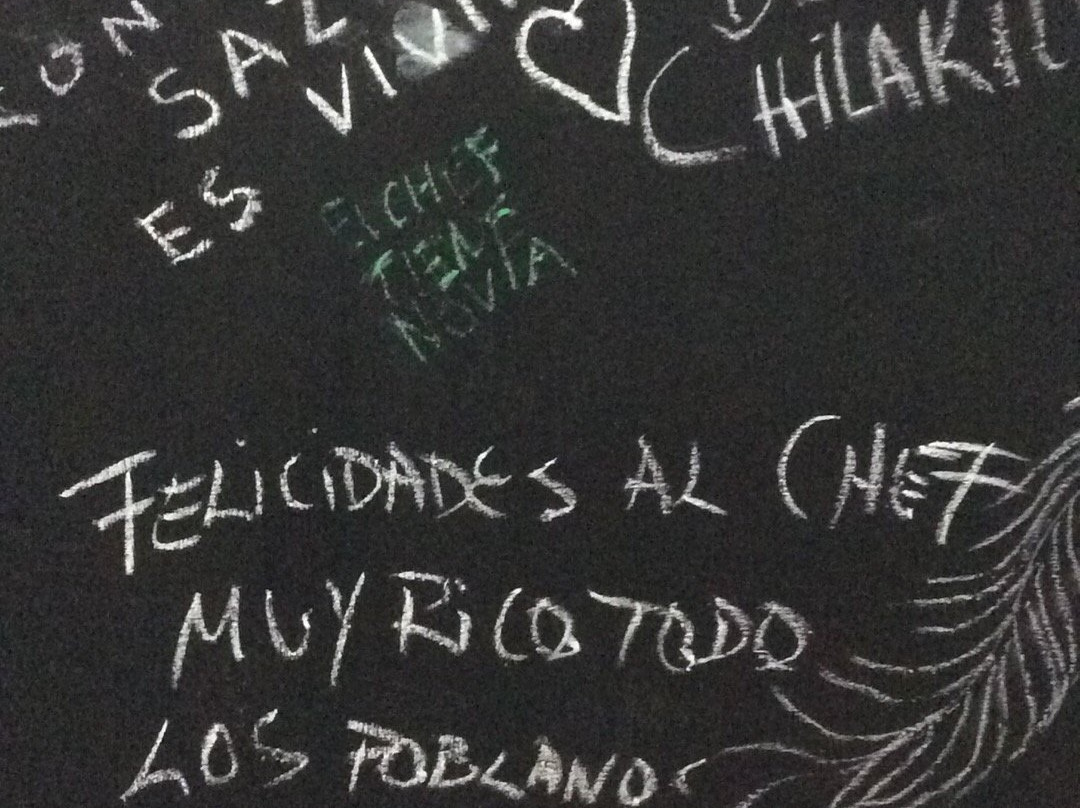 SAL
VIVIR
CHILAKIL
ES
EL CHEF
TIENE
NOVIA
FELICIDADES AL CHEF
MUY RICO TODO
LOS POBLANOS